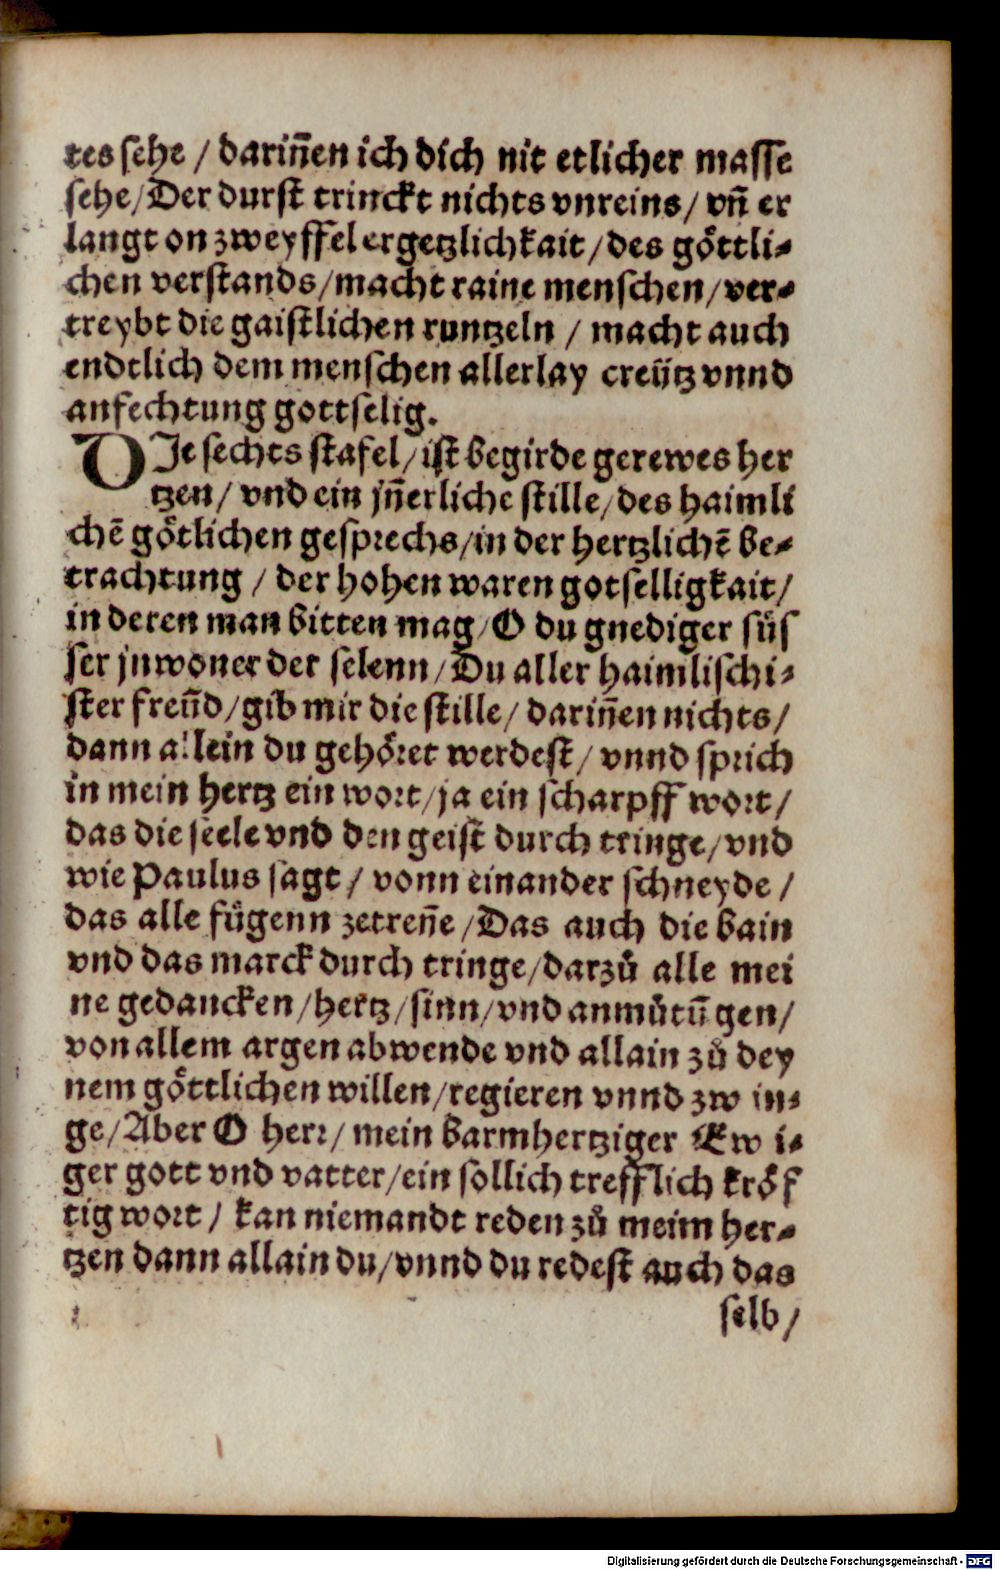 tes sehe / dariñen ich dich nit etlicher masse
sehe / Der durst trinckt nichts vnreins / vñ er
langt on zweyffel ergetzlichkait / des göttli-
chen verstands / macht raine menschen / ver-
treybt die gaistlichen runtzeln / macht auch
endtlich dem menschen allerlay creütz vnnd
anfechtung gottselig.
DIe sechts stafel / ist begirde gerewes her
tzen / vnd ein jñerliche stille / des haimli
chē götlichen gesprechs / in der hertzlichē be-
trachtung / der hohen waren gotselligkait /
in deren man bitten mag / O du gnediger süs
ser jnwoner der selenn / Du aller haimlischi-
ster freūd / gib mir die stille / dariñen nichts /
dann allein du gehöret werdest / vnnd sprich
in mein hertz ein wort / ja ein scharpff wort /
das die seele vnd den geist durch tringe / vnd
wie Paulus sagt / vonn einander schneyde /
das alle fügenn zetreñe / Das auch die bain
vnd das marck durch tringe / darzů alle mei
ne gedancken / hertz / sinn / vnd anmůtūgen /
von allem argen abwende vnd allain zů dey
nem göttlichen willen / regieren vnnd zwin-
ge / Aber O herr / mein barmhertziger Ewi-
ger gott vnd vatter / ein sollich trefflich kröf
tig wort / kan niemandt reden zů meim her-
tzen dann allain du / vnnd du redest auch das
selb /
Digitalisierung gefördert durch die Deutsche Forschungsgemeinschaft - DFG